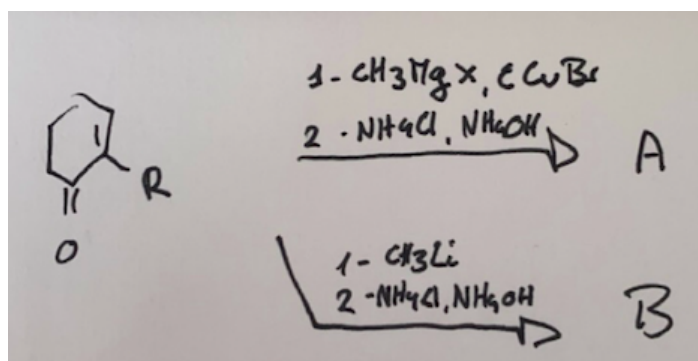 1- CH3MgX, εCuBr
2 - NH4Cl, NH4OH
A
R
O
1- CH3Li
2 -NH4Cl, NH4OH
B